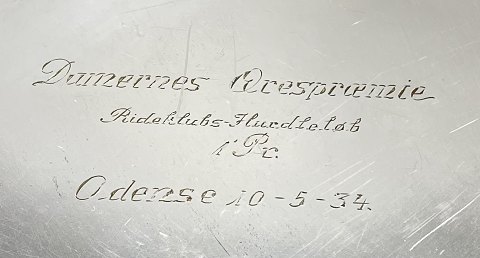 Damernes Ærespræmie
Rideklubs-Hurdleløb
1' Pr.
Odense 10-5-34.